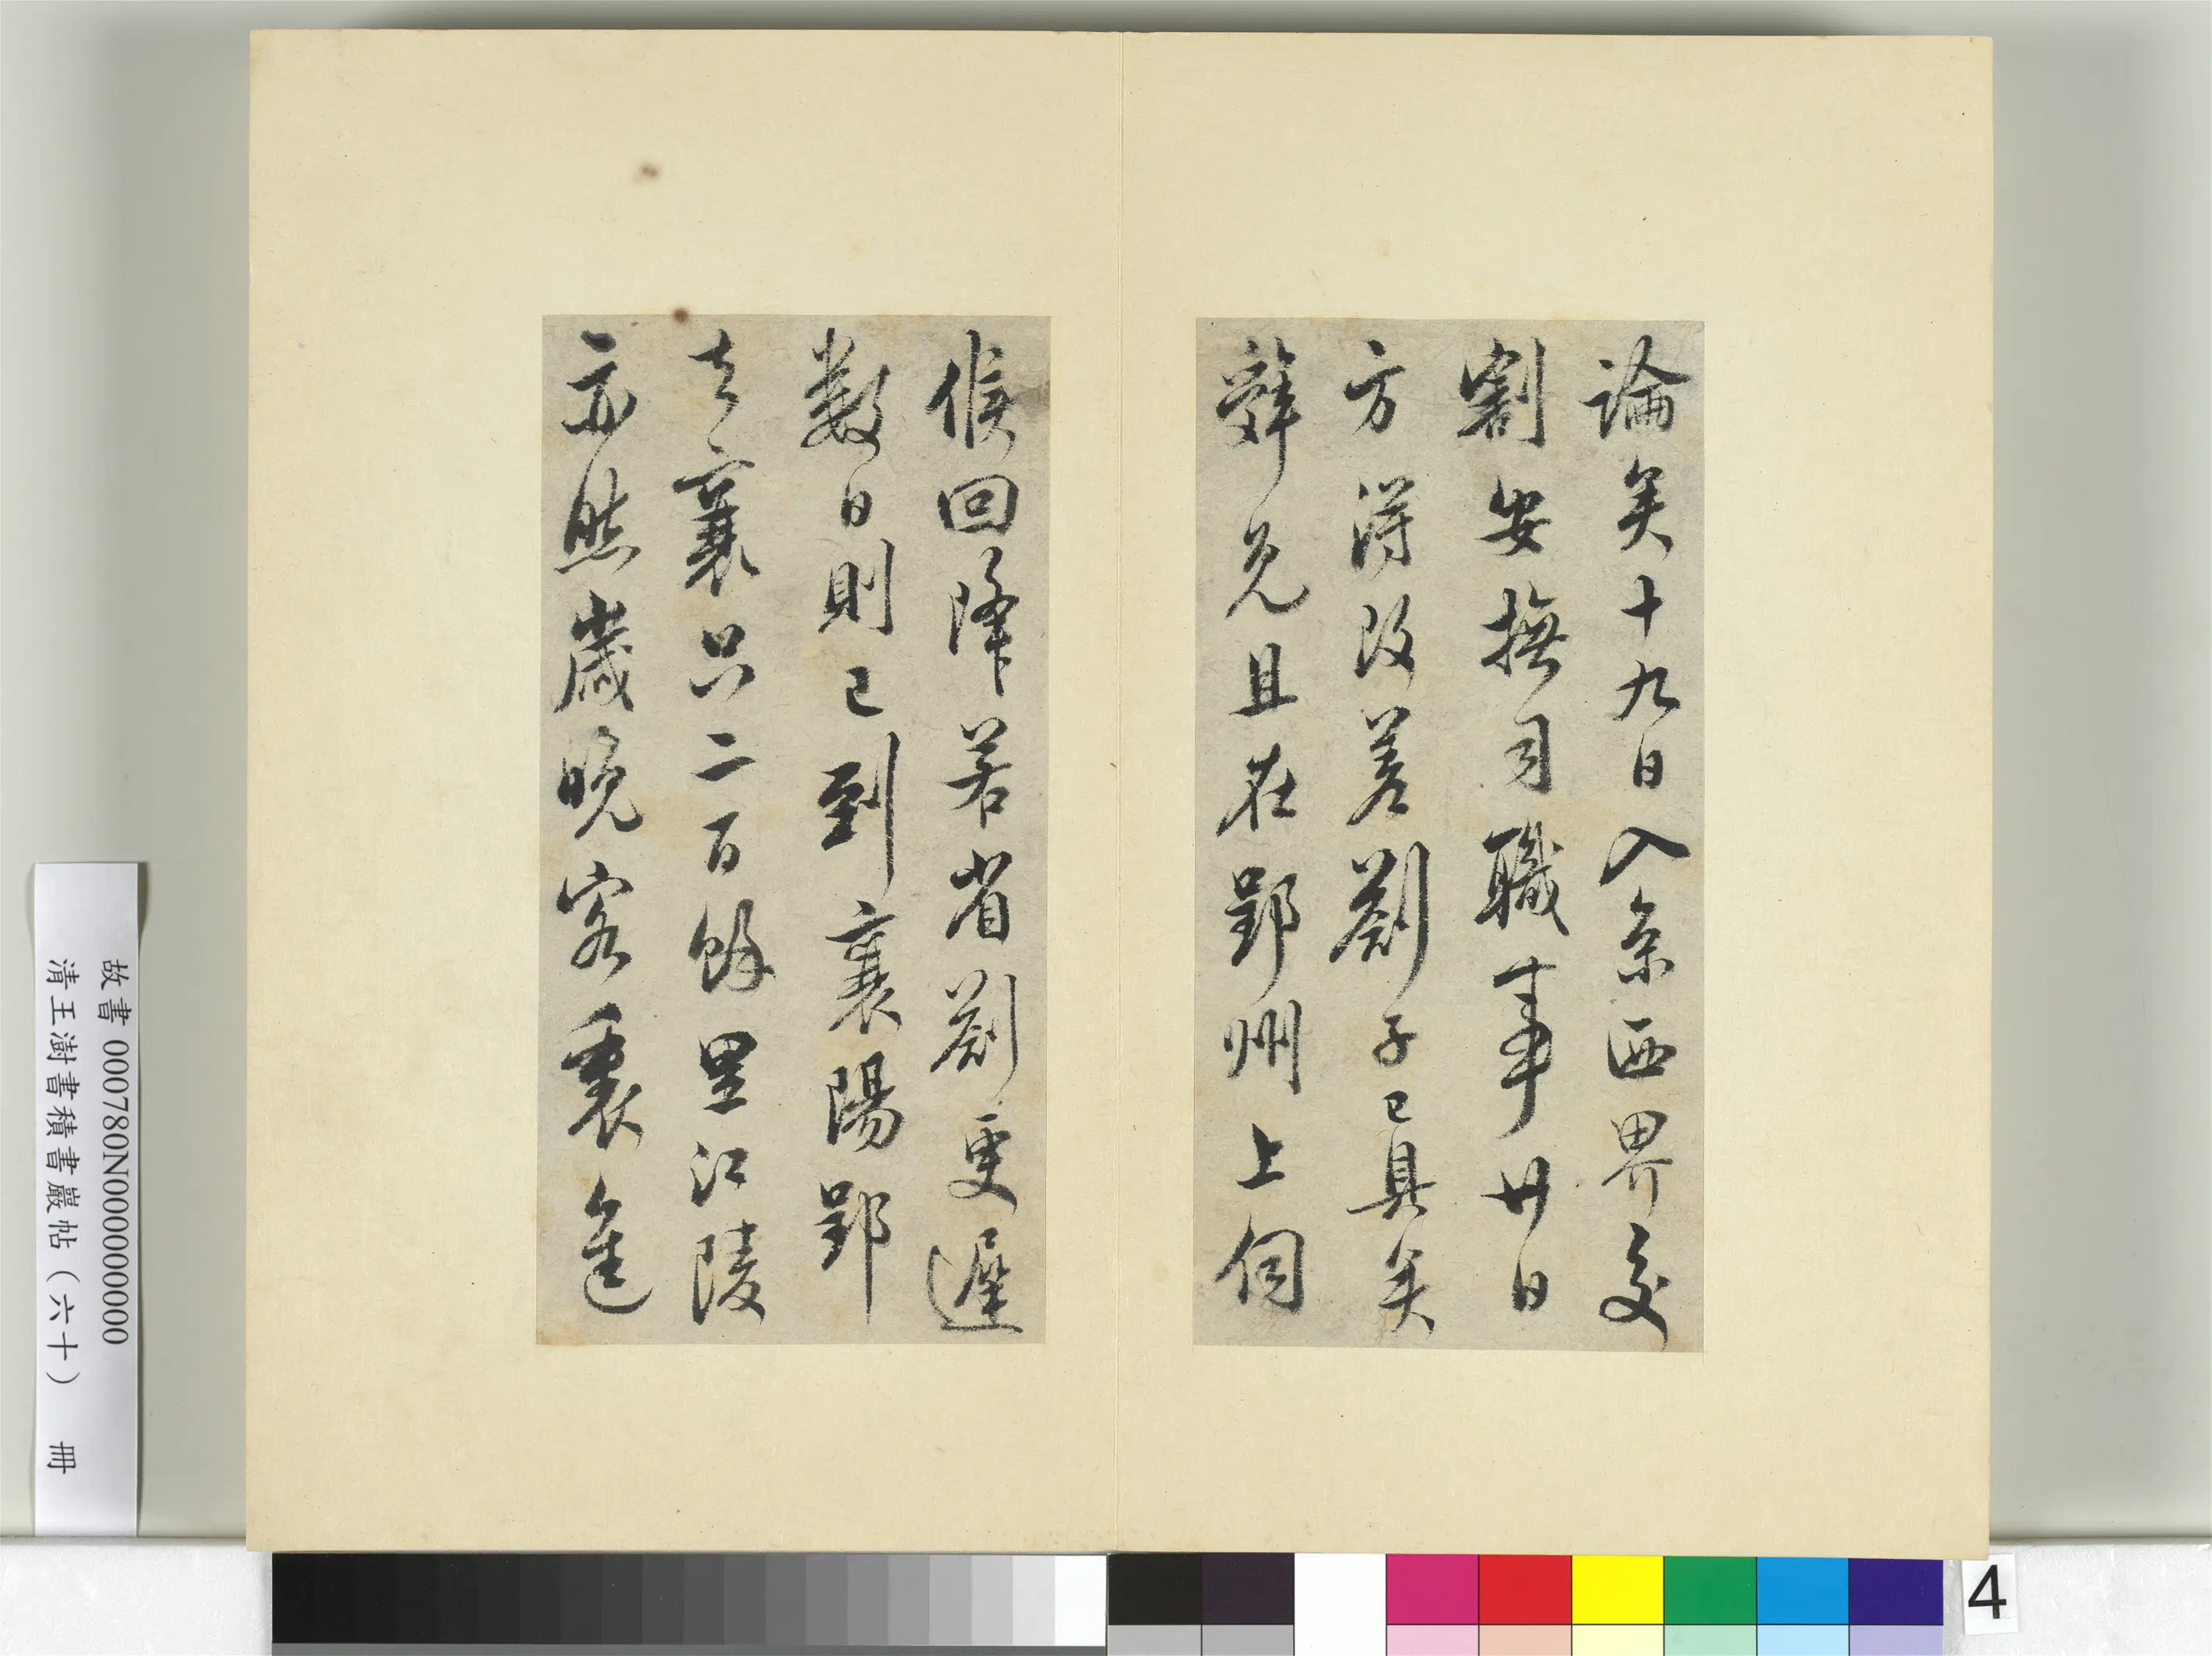 論奏十九日入京西界交
割安撫司職事廿日
方得改差劄子已具奏
辭免且在郢州上伺
候回降若省劄更遲
數日則已到襄陽郢
去襄只二百餘里江陵
亦然歲晚客裏進
故書 000780N000000000
清王澍書積書巖帖（六十） 冊
4